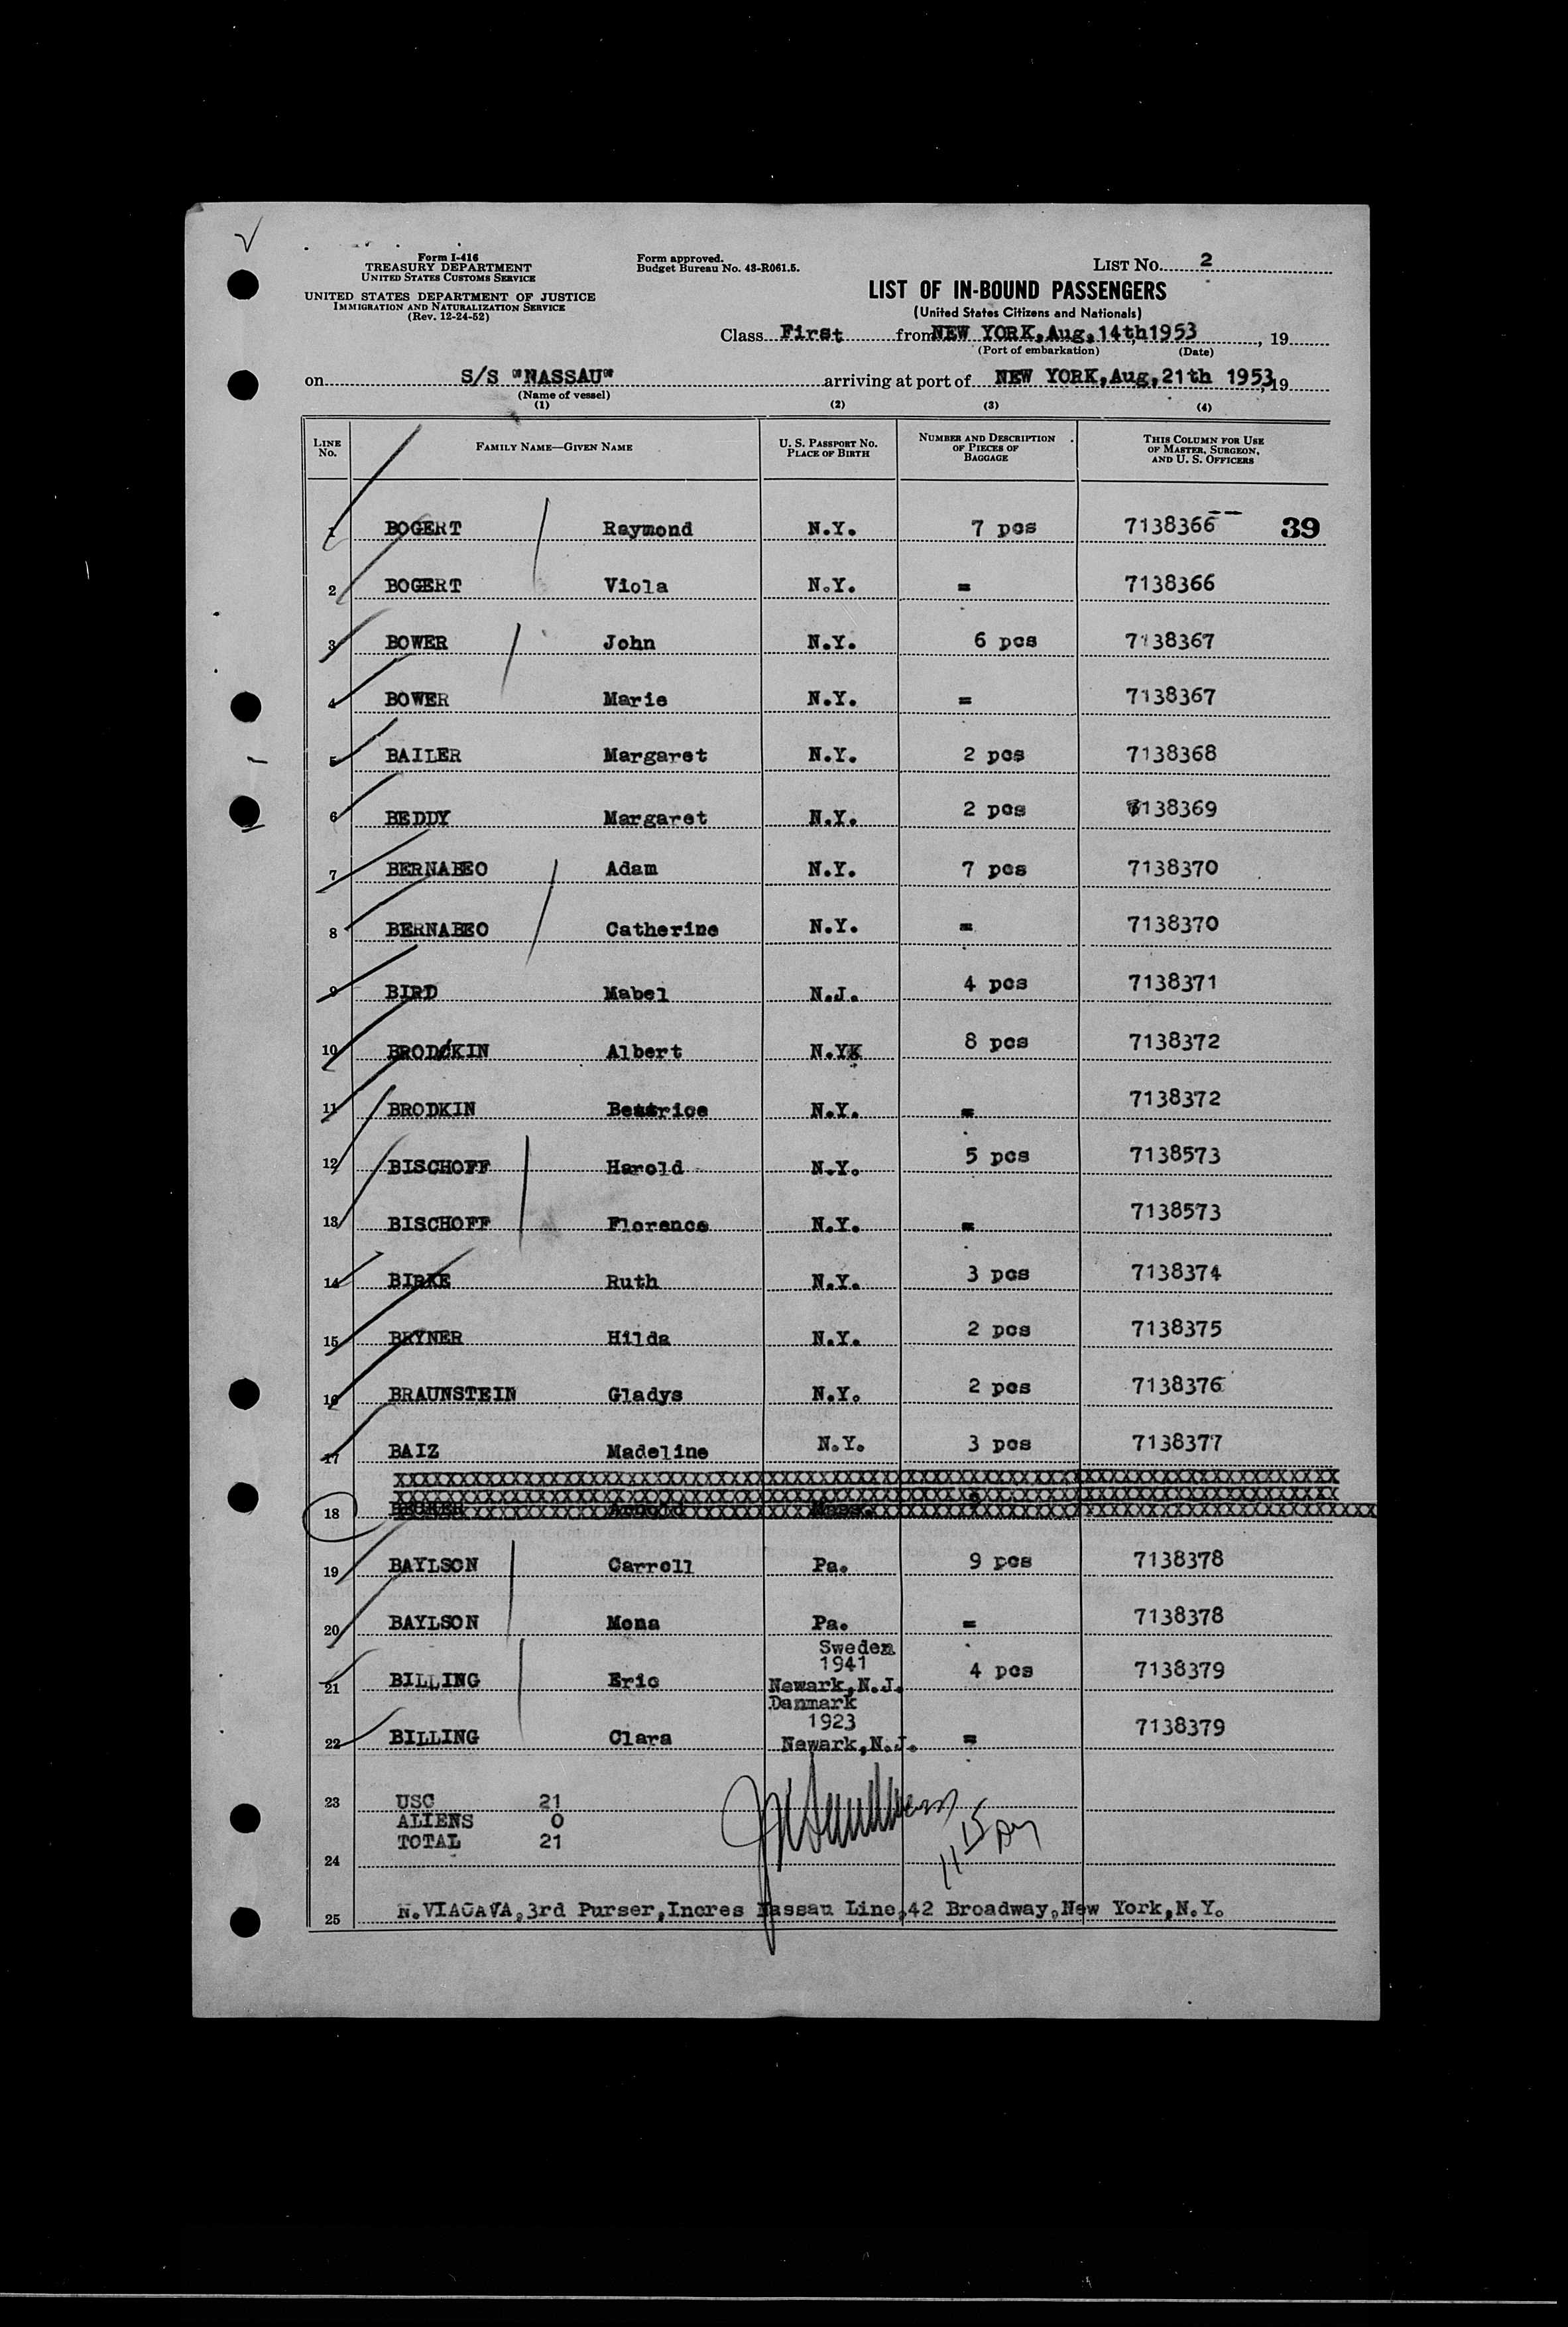 Form I-416
TREASURY DEPARTMENT
UNITED STATES CUSTOMS SERVICE
UNITED STATES DEPARTMENT OF JUSTICE
IMMIGRATION AND NATURALIZATION SERVICE
(Rev. 12-24-52)
Form approved.
Budget Bureau No. 43-R061.5.
LIST No. 2
LIST OF IN-BOUND PASSENGERS
(United States Citizens and Nationals)
Class First from NEW YORK,Aug,14th1953, 19
(Port of embarkation) (Date)
on S/S "NASSAU" arriving at port of NEW YORK,Aug,21th 1953,19
(Name of vessel)
(1) (2) (3) (4)
LINE No. FAMILY NAME—GIVEN NAME U. S. PASSPORT No. PLACE OF BIRTH NUMBER AND DESCRIPTION OF PIECES OF BAGGAGE THIS COLUMN FOR USE OF MASTER, SURGEON, AND U. S. OFFICERS
1 BOGERT Raymond N.Y. 7 pcs 7138366 39
2 BOGERT Viola N.Y. = 7138366
3 BOWER John N.Y. 6 pcs 7138367
4 BOWER Marie N.Y. = 7138367
5 BAILER Margaret N.Y. 2 pcs 7138368
6 BEDDY Margaret N.Y. 2 pcs 7138369
7 BERNABEO Adam N.Y. 7 pcs 7138370
8 BERNABEO Catherine N.Y. = 7138370
9 BIRD Mabel N.J. 4 pcs 7138371
10 BRODCKIN Albert N.YK 8 pcs 7138372
11 BRODKIN Beatrice N.Y. = 7138372
12 BISCHOFF Harold N.Y. 5 pcs 7138573
13 BISCHOFF Florence N.Y. = 7138573
14 BIRKE Ruth N.Y. 3 pcs 7138374
15 BRYNER Hilda N.Y. 2 pcs 7138375
16 BRAUNSTEIN Gladys N.Y. 2 pcs 7138376
17 BAIZ Madeline N.Y. 3 pcs 7138377
18 BECKER Arnold Mass.
19 BAYLSON Carroll Pa. 9 pcs 7138378
20 BAYLSON Mona Pa. = 7138378
Sweden
1941
21 BILLING Eric Newark,N.J. 4 pcs 7138379
Danmark
1923
22 BILLING Clara Newark,N.J. = 7138379
23 USC 21
ALIENS 0
TOTAL 21
11 15 pm
24
25 N.VIACAVA,3rd Purser,Incres Nassau Line,42 Broadway,New York,N.Y.